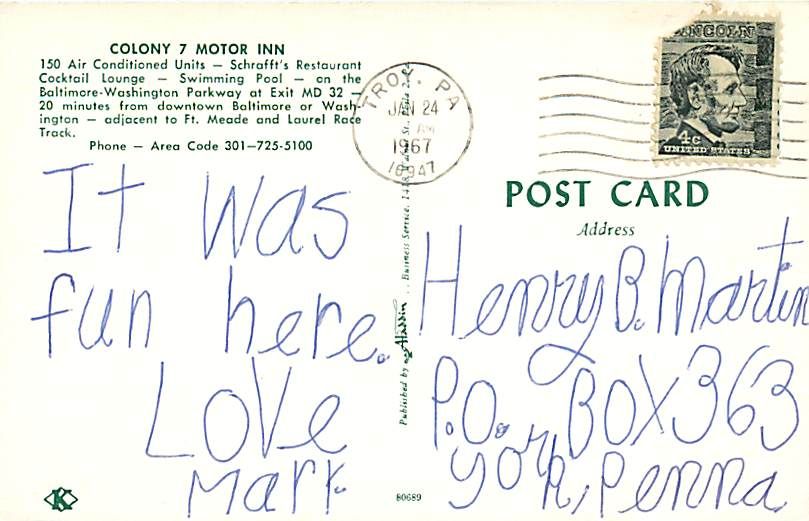 COLONY 7 MOTOR INN
150 Air Conditioned Units — Schrafft's Restaurant
Cocktail Lounge — Swimming Pool — on the
Baltimore-Washington Parkway at Exit MD 32 —
20 minutes from downtown Baltimore or Wash-
ington — adjacent to Ft. Meade and Laurel Race
Track.
Phone — Area Code 301—725-5100
It was
fun here.
Love
Mark
TROY, PA
JAN 24
AM
1967
16947
LINCOLN
4c
UNITED STATES
POST CARD
Address
Henry B. Martin
P.O. BOX 363
York, Penna.
Published by Aladdin
Business Service,
80689
K